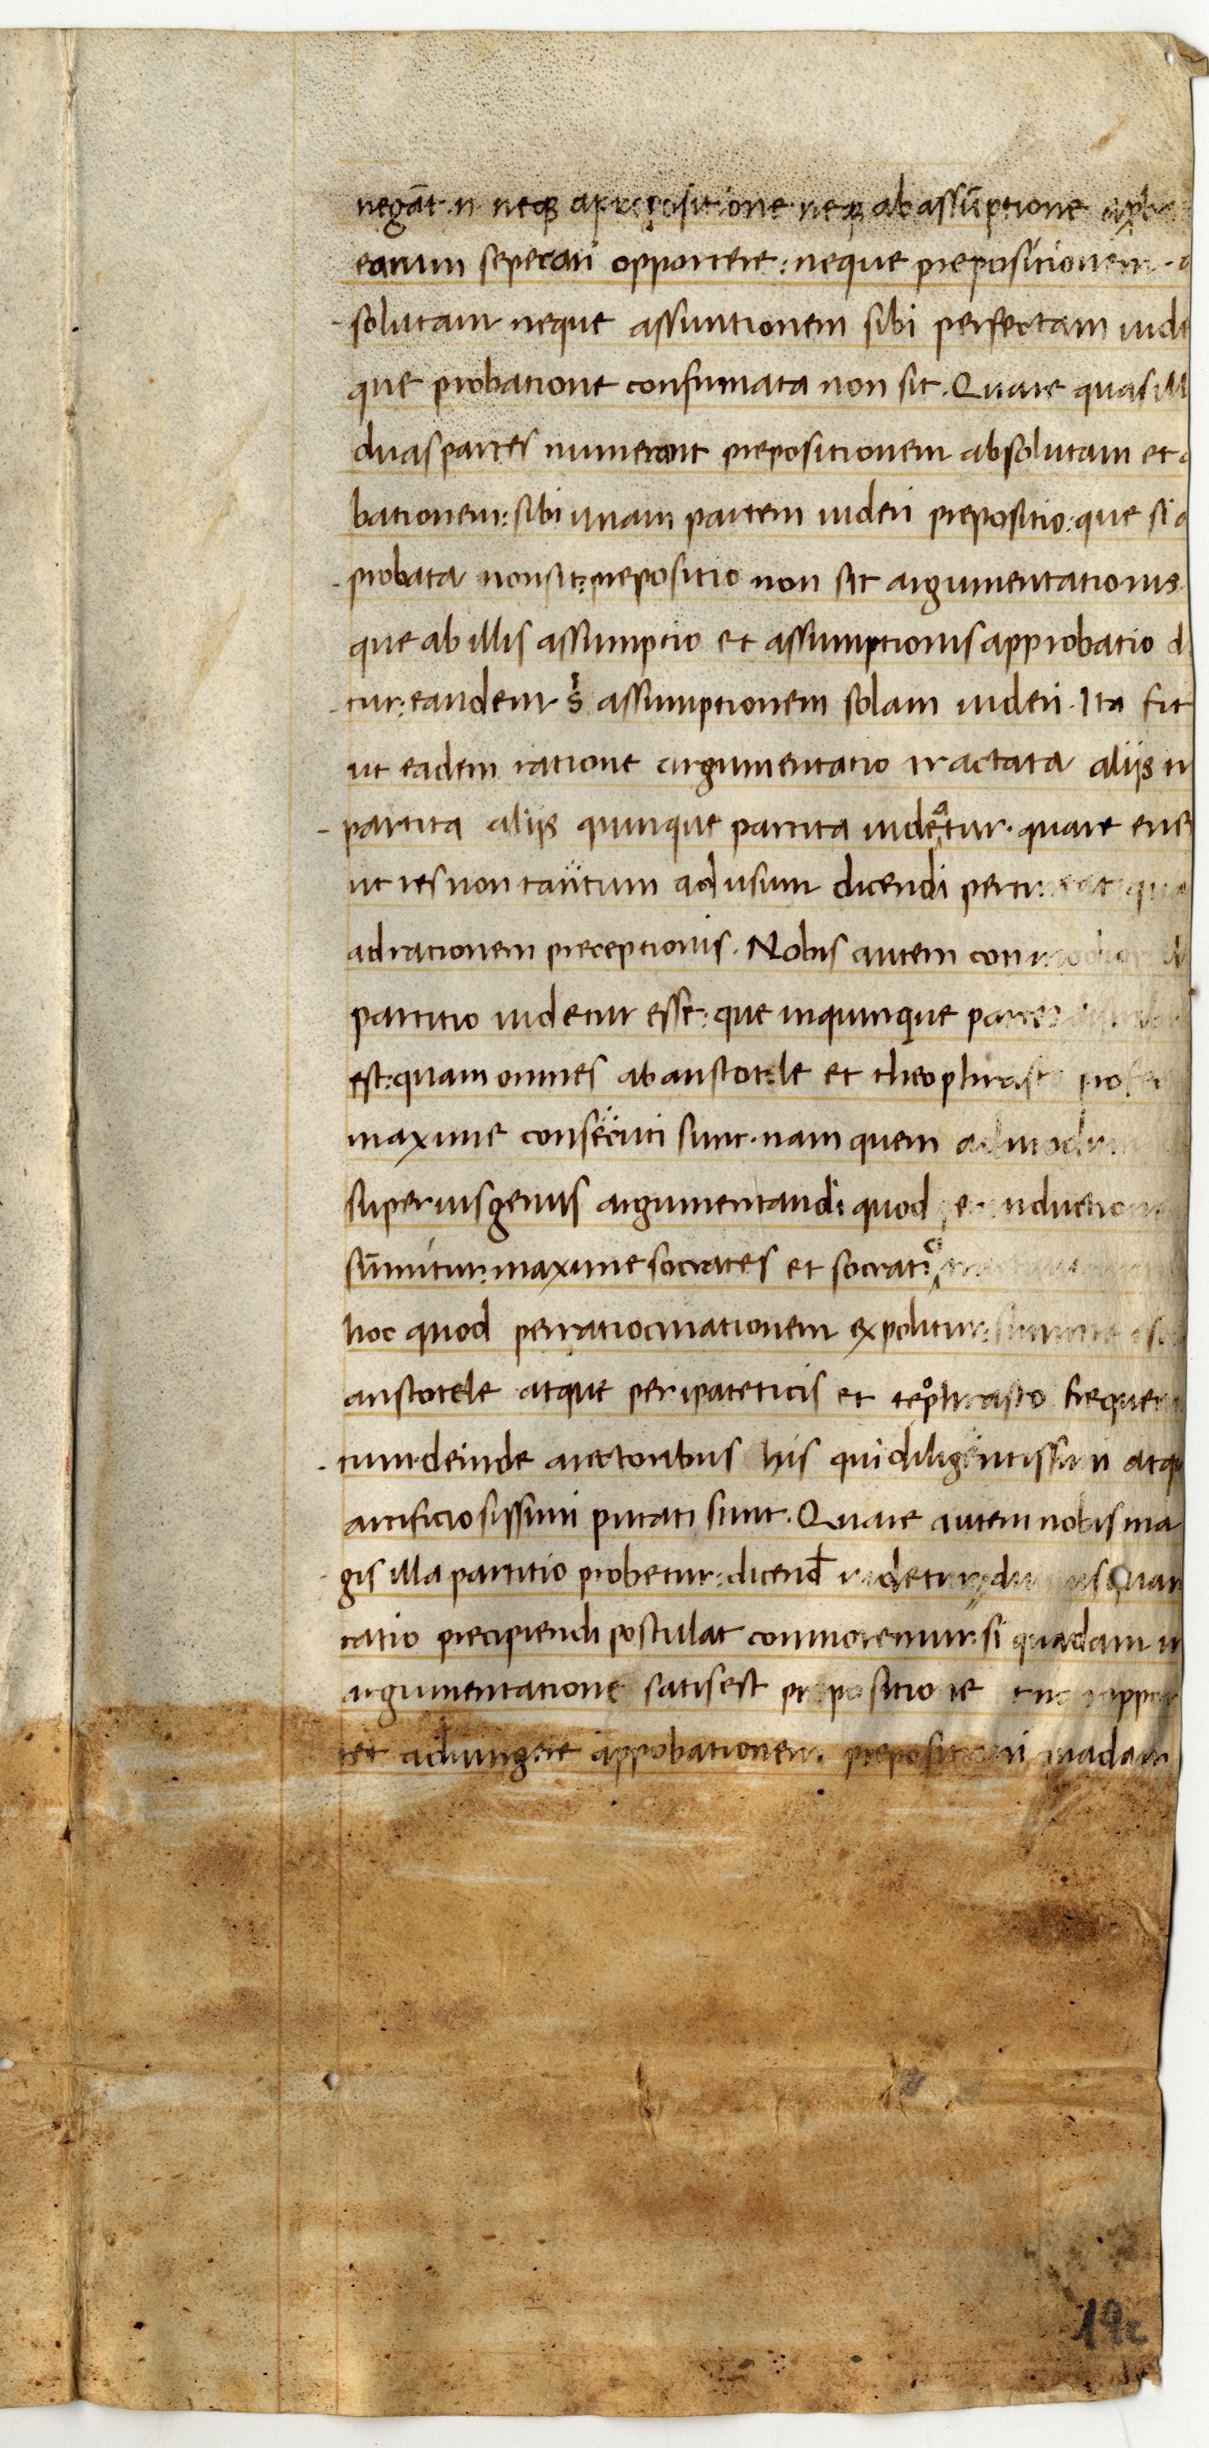 negāt .n. neqꝫ apropositione neqꝫ ab assūptione
earum seperari opportere: neque prepositionem
solutam neque assuntionem sibi perfectam uide
que probatione consumata non sit. Quare quas ill
duas partes numerent prepositionem absolutam et
bationem: sibi unam partem uideri prepositio: que si
probata non sit: prepositio non sit argumentationis
que ab illis assumptio et assumptionis approbatio d
tur: eandem s̓ assumptionem solam uideri. Ita fit
ut eadem ratione argumentatio tractata aliis tr
partita aliis quinque partita uideatur. quare eue
ut res non tantum ad usum dicendi pertineat qua
ad rationem preceptionis. Nobis autem commodior
partitio uidetur esse: que inquinque partes
est: quam omnes ab aristotele et theophrasto
maxime consecuti sunt. nam quem admodum
superius genus argumentandi quod inductione
sūmitur: maxime socrates et socratici
hoc quod perratiocinationem expolitur: summe
aristotele atque peripateticis et teophrasto frequen
tum. deinde auctoribus his qui diligentissimi atqu
artificiosissimi putati sunt. Quare autem nobis ma
gis illa partitio probetur: dicend̄ uidetur
ratio precipiendi postulat commoremur: si quadam in
argumentatione satis est propositione
tet adiungere approbationem prepositioni inadam
19c